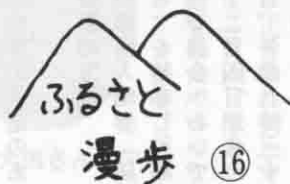 ふるさと
漫歩 ⑯